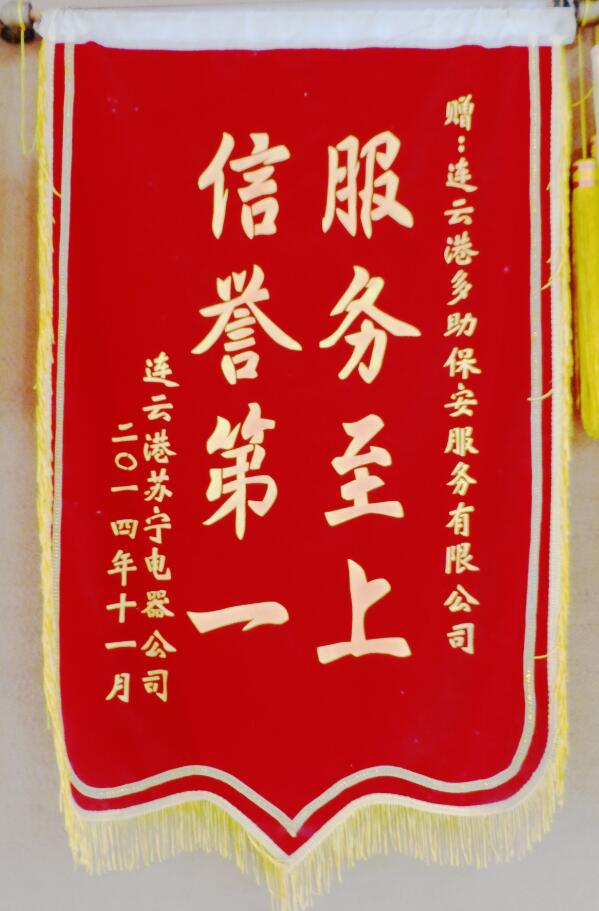 赠：连云港多助保安服务有限公司
服务至上
信誉第一
连云港苏宁电器公司
二〇一四年十一月